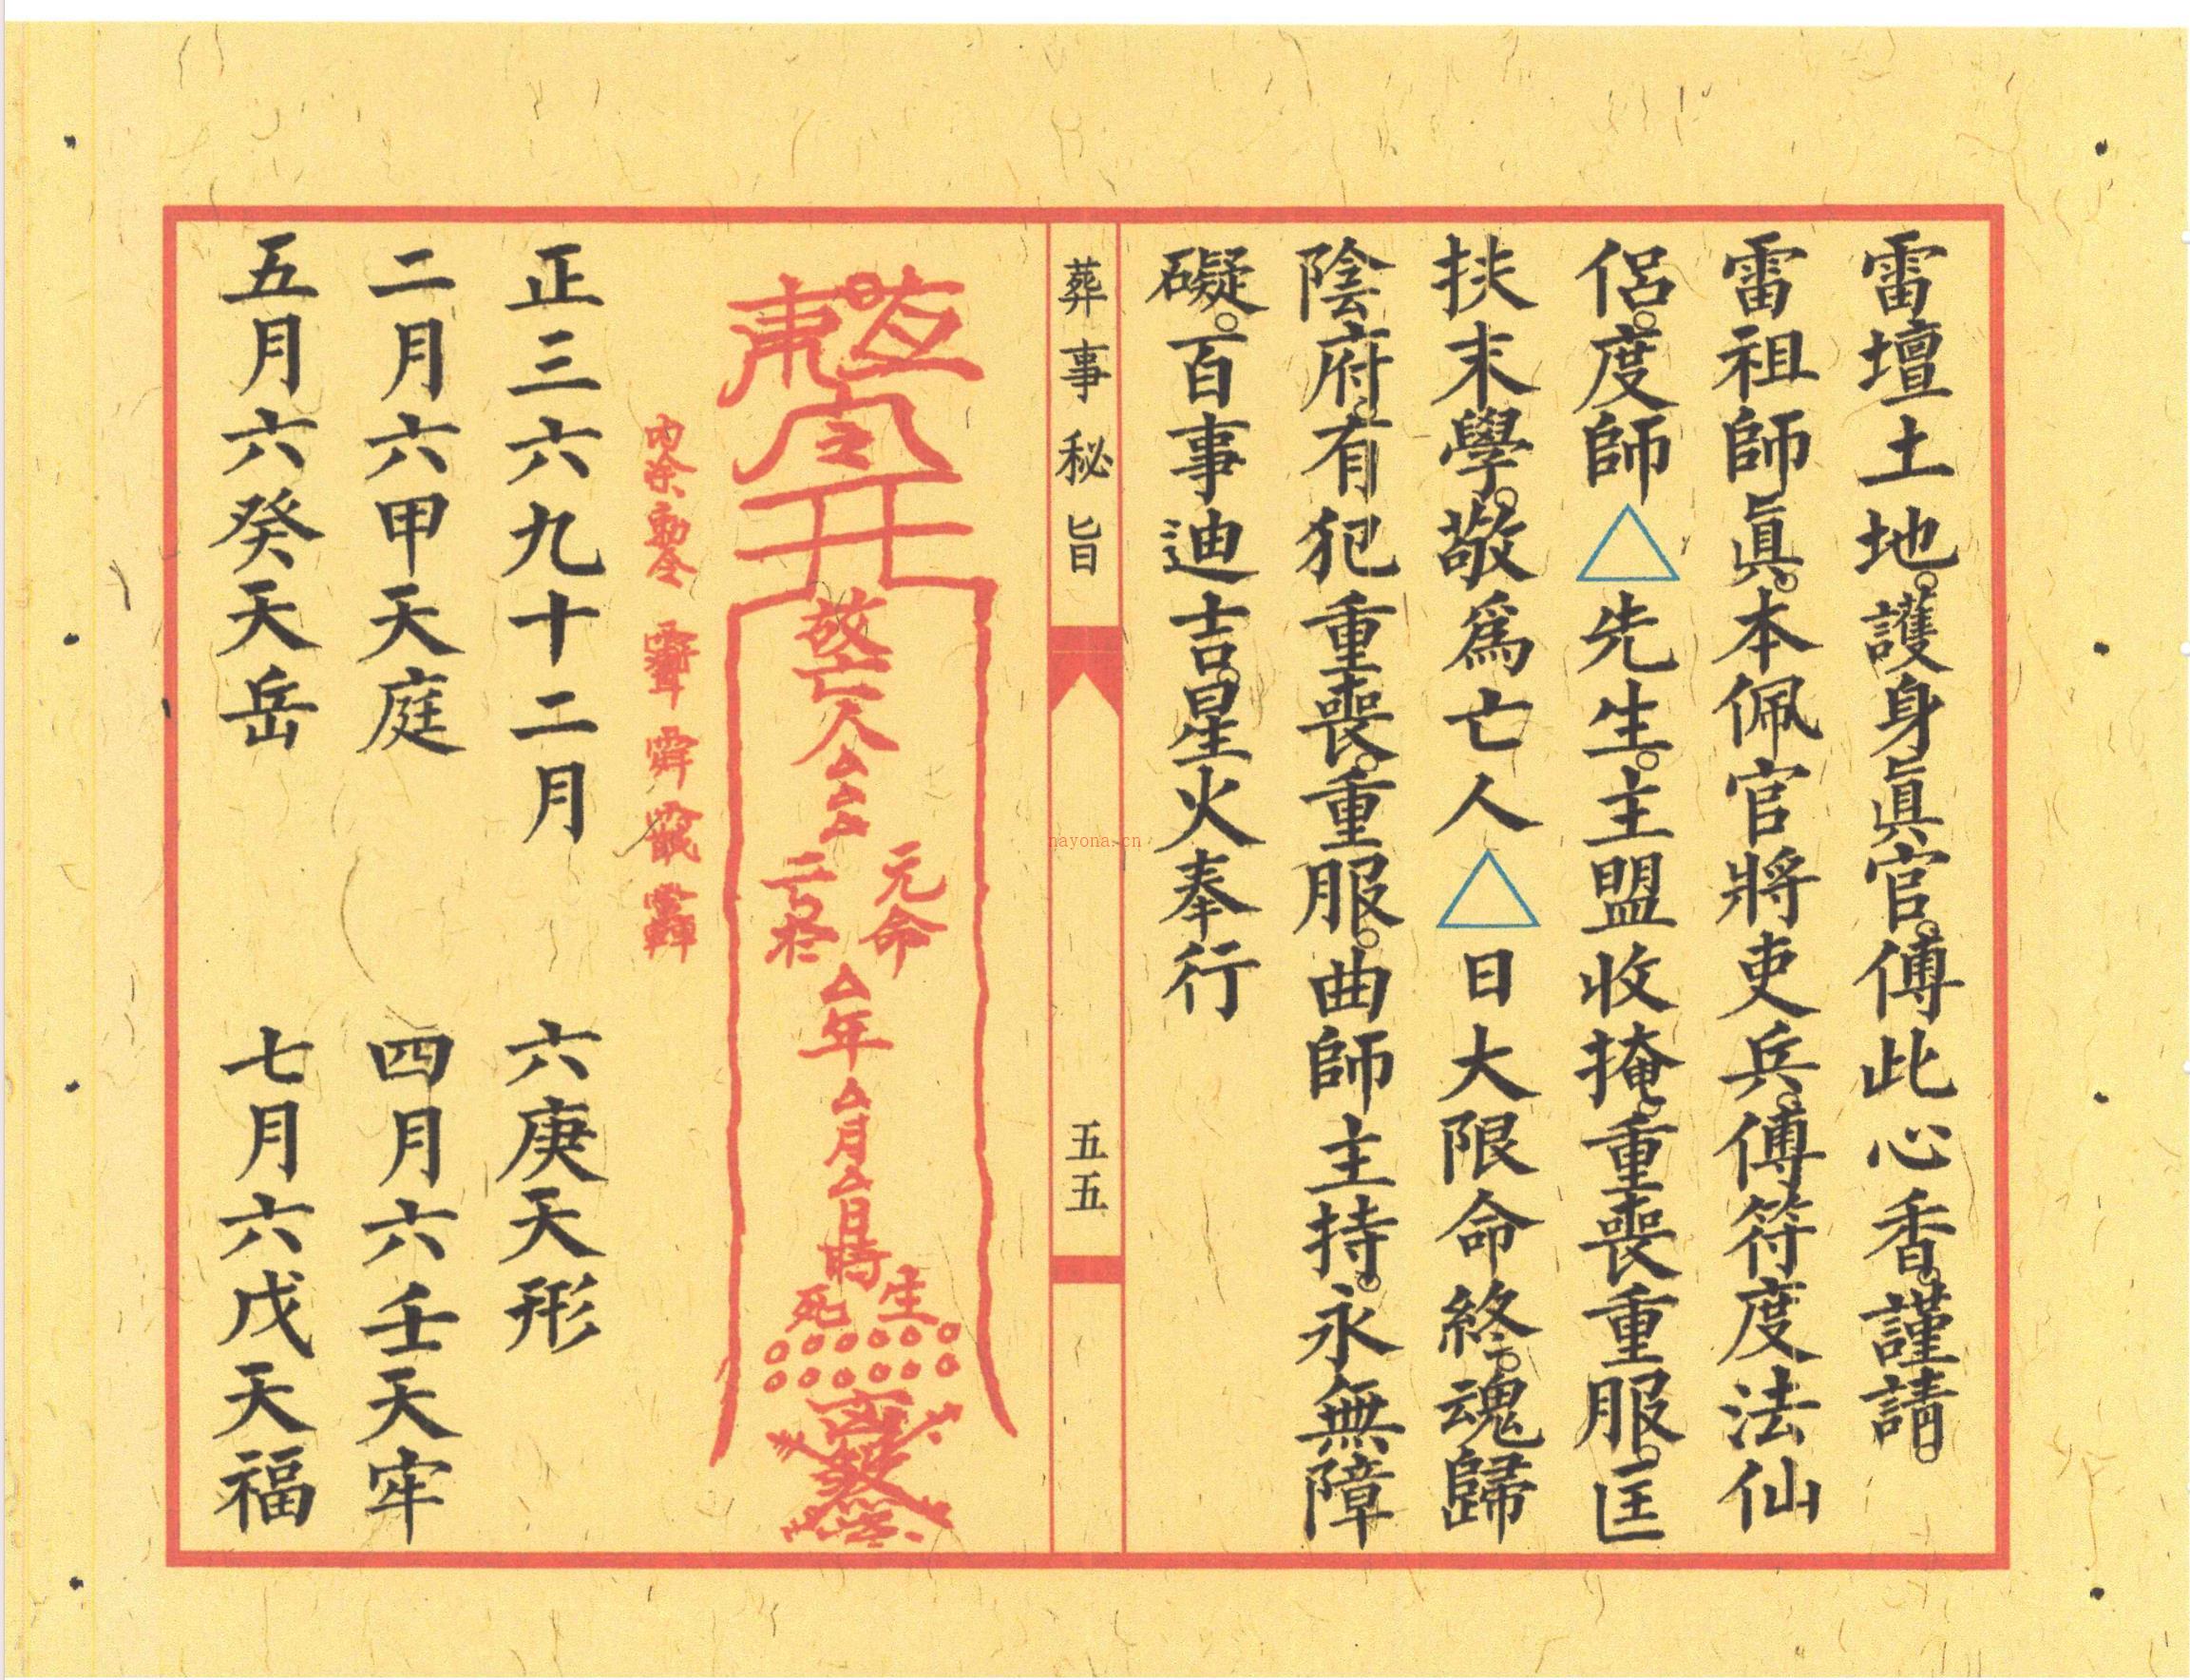 雷壇土地。護身眞官。傅此心香。謹請。
雷祖師眞。本佩官將吏兵。傅符度法仙
侶。度師△先生。主盟收掩。重喪重服。匡
扶末學。敬爲亡人△日大限命終。魂歸
陰府。有犯重喪。重服。曲師主持。永無障
礙。百事迪吉。星火奉行
葬事秘旨
五五
敀亡人厶厶厶
元命
厶年厶月厶日時
生
死
內塗勅令
正三六九十二月 六庚天形
二月六甲天庭 四月六壬天牢
五月六癸天岳 七月六戊天福
nayona.cn